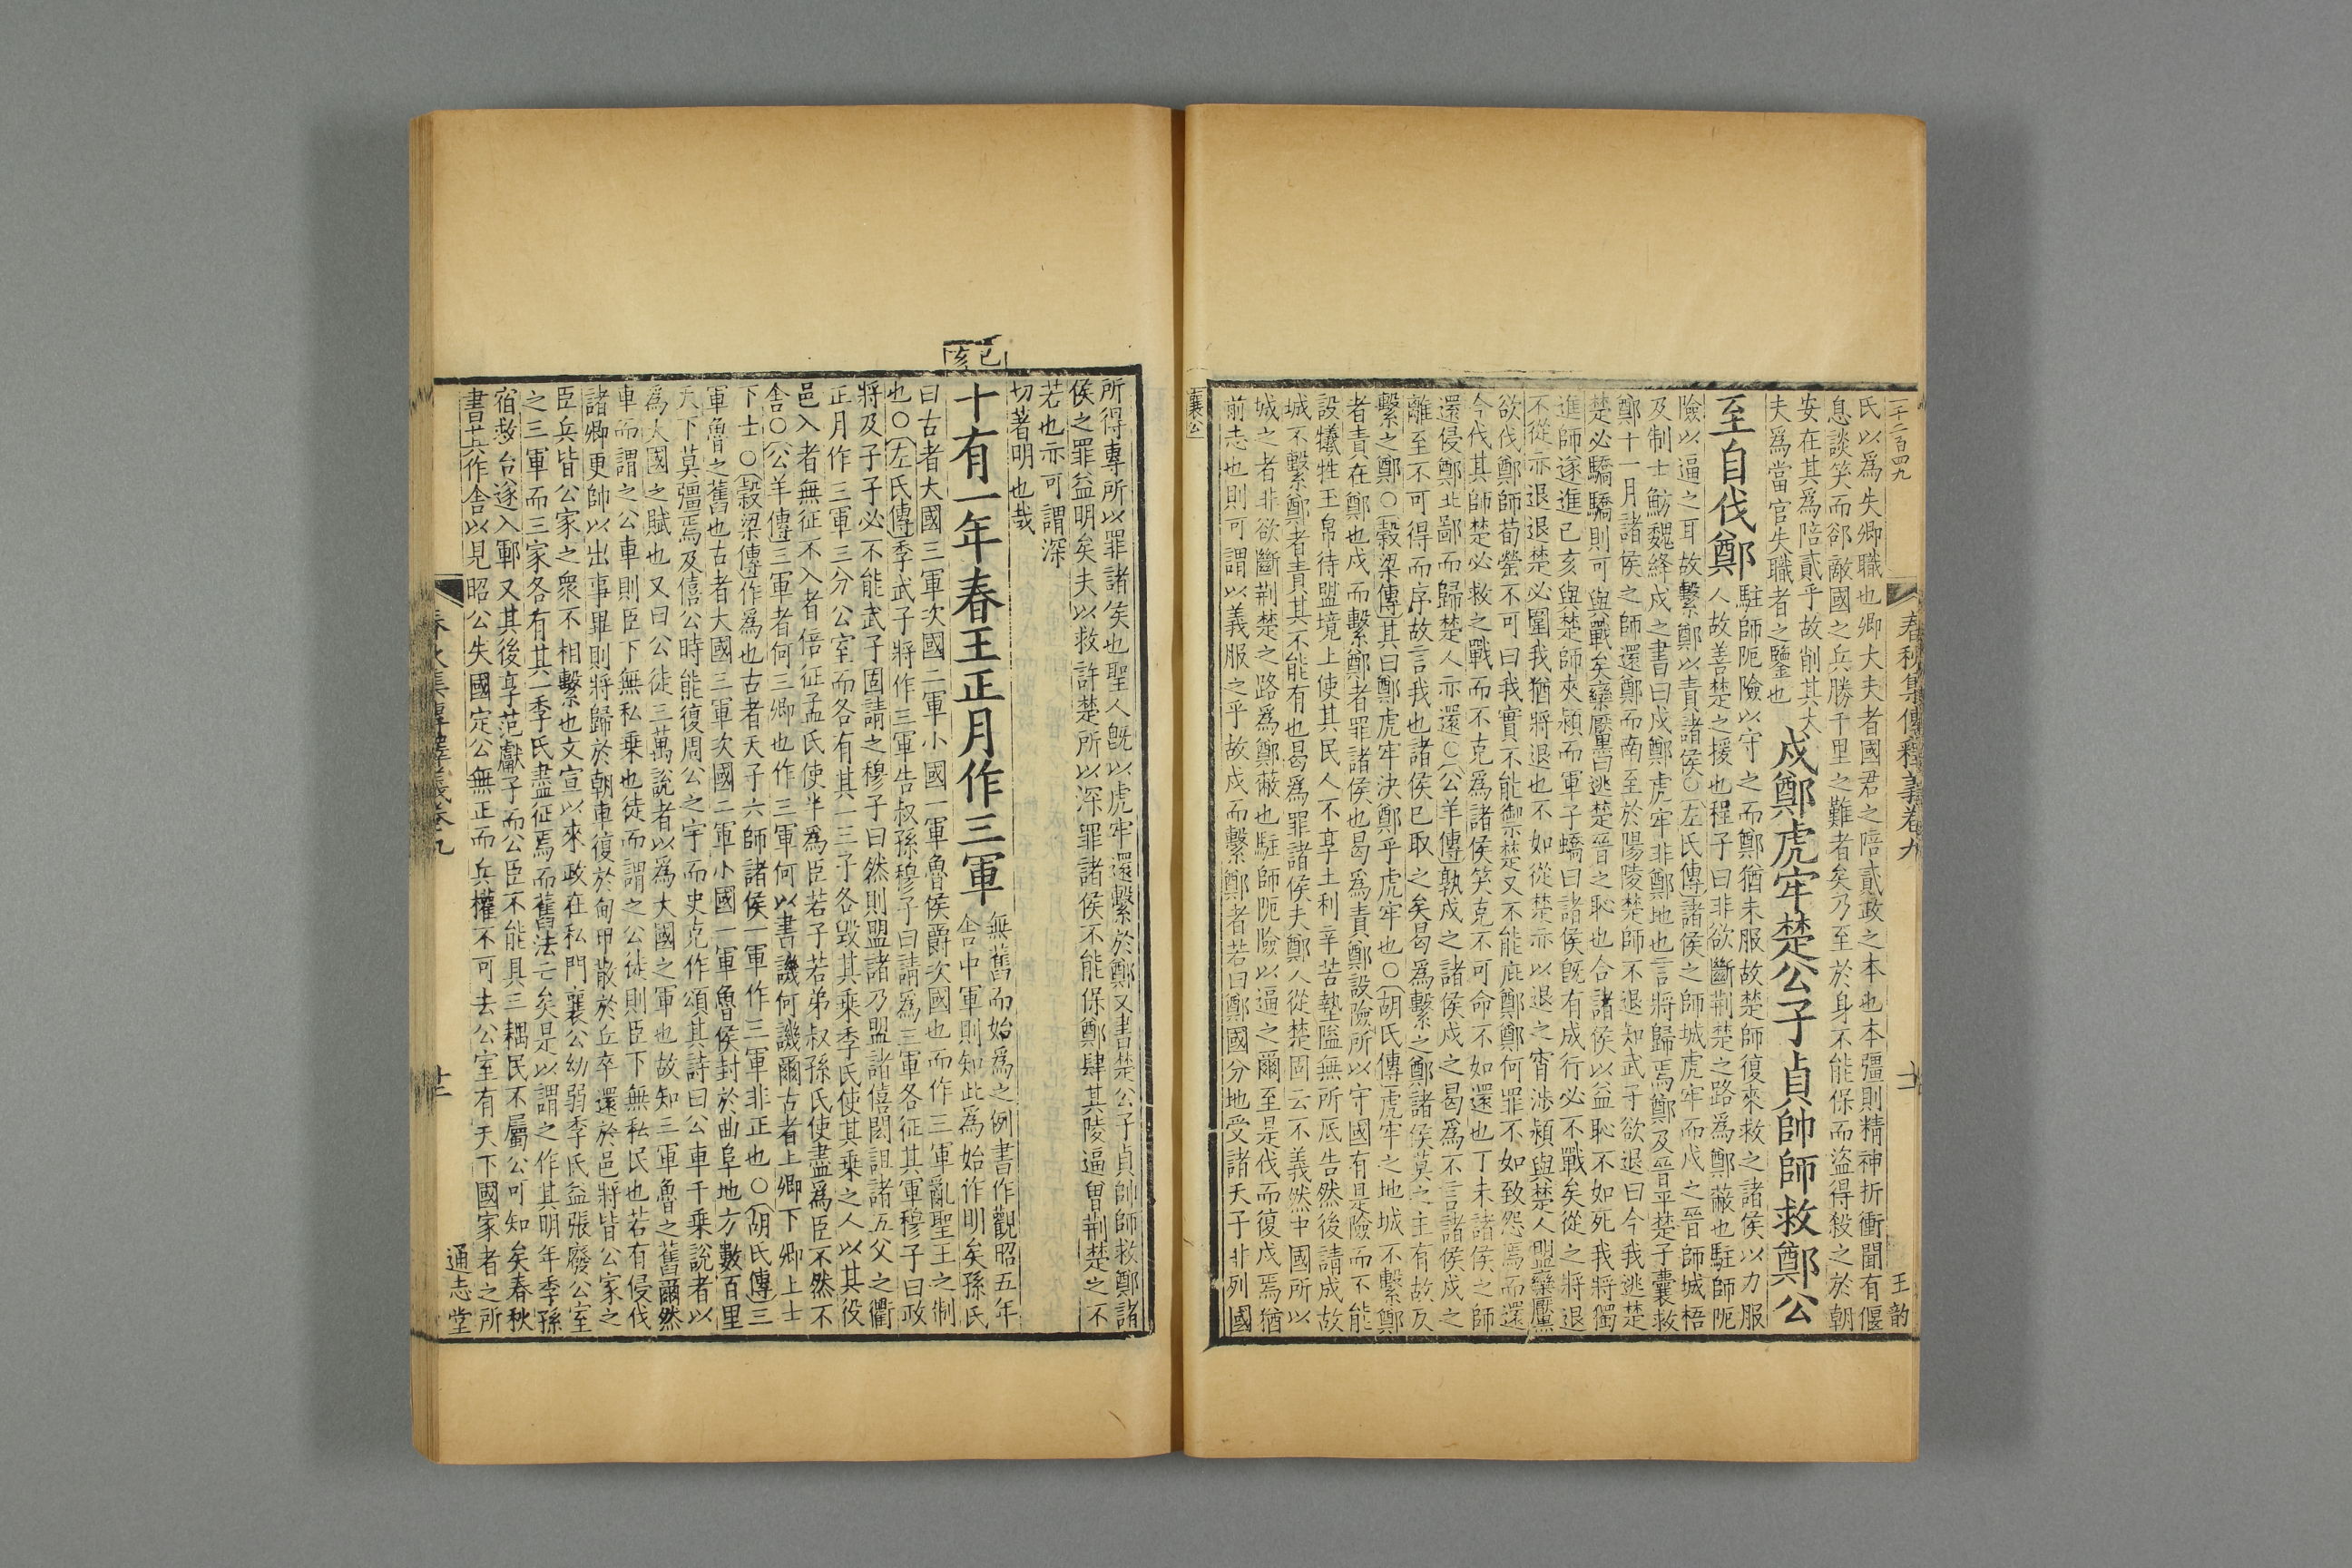 氏以為失卿職也卿大夫者國君之陪貳政之本也本彊則精神折衝聞有偃
息談笑而郤敵國之兵勝千里之難者矣乃至於身不能保而盜得殺之於朝
安在其為陪貳乎故削其大
夫為當官失職者之鑒也
戍鄭虎牢楚公子貞帥師救鄭公
至自伐鄭
駐師阨險以守之而鄭猶未服故楚師復來救之諸侯以力服
人故善楚之援也程子曰非欲斷荆楚之路為鄭蔽也駐師阨
險以逼之耳故繫鄭以責諸侯○左氏傳諸侯之師城虎牢而戍之晉師城梧
及制士魴魏絳戍之書曰戍鄭虎牢非鄭地也言將歸焉鄭及晉平楚子囊救
鄭十一月諸侯之師還鄭而南至於陽陵楚師不退知武子欲退曰今我逃楚
楚必驕驕則可與戰矣欒黶曰逃楚晉之恥也合諸侯以益恥不如死我將獨
進師遂進己亥與楚師夾潁而軍子蟜曰諸侯旣有成行必不戰矣從之將退
不從亦退退楚必圍我猶將退也不如從楚亦以退之宵涉潁與楚人盟欒黶
欲伐鄭師荀罃不可曰我實不能禦楚又不能庇鄭鄭何罪不如致怨焉而還
今伐其師楚必救之戰而不克為諸侯笑克不可命不如還也丁未諸侯之師
還侵鄭北鄙而歸楚人亦還○公羊傳孰戍之諸侯戍之曷為不言諸侯戍之
離至不可得而序故言我也諸侯已取之矣曷為繫之鄭諸侯莫之主有故反
繫之鄭○穀梁傳其曰鄭虎牢決鄭乎虎牢也○胡氏傳虎牢之地城不繫鄭
者責在鄭也戍而繫鄭者罪諸侯也曷為責鄭設險所以守國有是險而不能
設犧牲玉帛待盟境上使其民人不享土利辛苦墊隘無所厎告然後請成故
城不繫鄭者責其不能有也曷為罪諸侯夫鄭人從楚固云不義然中國所以
城之者非欲斷荆楚之路為鄭蔽也駐師阨險以逼之爾至是伐而復戍焉猶
前志也則可謂以義服之乎故戍而繫鄭者若曰鄭國分地受諸天子非列國
襄公
二千二百四九
春秋集傳釋義卷九
王韵
所得專所以罪諸侯也聖人旣以虎牢還繫於鄭又書楚公子貞帥師救鄭諸
侯之罪益明矣夫以救許楚所以深罪諸侯不能保鄭肆其陵逼曾荆楚之不
若也亦可謂深
切著明也哉
己亥
十有一年春王正月作三軍
無舊而始為之例書作觀昭五年
舍中軍則知此為始作明矣孫氏
曰古者大國三軍次國二軍小國一軍魯侯爵次國也而作三軍亂聖王之制
也○左氏傳季武子將作三軍告叔孫穆子曰請為三軍各征其軍穆子曰政
將及子子必不能武子固請之穆子曰然則盟諸乃盟諸僖閎詛諸五父之衢
正月作三軍三分公室而各有其一三子各毀其乘季氏使其乘之人以其役
邑入者無征不入者倍征孟氏使半為臣若子若弟叔孫氏使盡為臣不然不
舍○公羊傳三軍者何三卿也作三軍何以書譏何譏爾古者上卿下卿上士
下士○穀梁傳作為也古者天子六師諸侯一軍作三軍非正也○胡氏傳三
軍魯之舊也古者大國三軍次國二軍小國一軍魯侯封於曲阜地方數百里
天下莫彊焉及僖公時能復周公之宇而史克作頌其詩曰公車千乘說者以
為大國之賦也又曰公徒三萬說者以為大國之軍也故知三軍魯之舊爾然
車而謂之公車則臣下無私乘也徒而謂之公徒則臣下無私民也若有侵伐
諸卿更帥以出事畢則將歸於朝車復於甸甲散於丘卒還於邑將皆公家之
臣兵皆公家之衆不相繫也文宣以來政在私門襄公幼弱季氏益張廢公室
之三軍而三家各有其一季氏盡征焉而舊法亡矣是以謂之作其明年季孫
宿救台遂入鄆又其後享范獻子而公臣不能具三耦民不屬公可知矣春秋
書其作舍以見昭公失國定公無正而兵權不可去公室有天下國家者之所
春秋集傳釋義卷九
通志堂